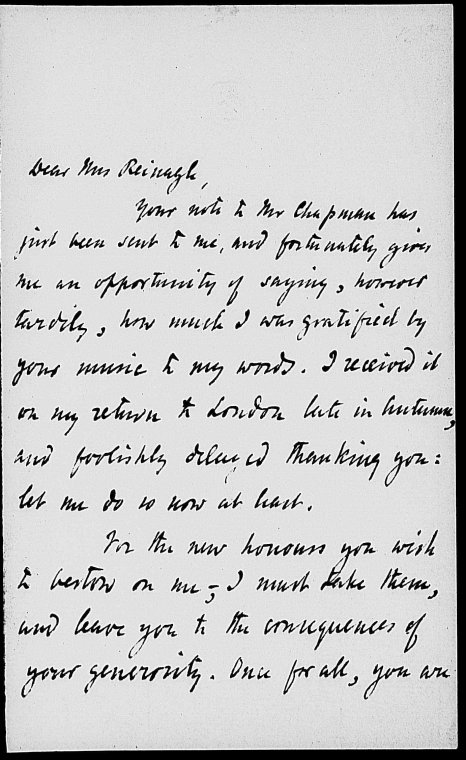 Dear Mrs Reinagle,
Your note to Mr Chapman has
just been sent to me, and fortunately gives
me an opportunity of saying, however
tardily, how much I was gratified by
your music to my words. I received it
on my return to London late in Autumn,
and foolishly delayed thanking you:
let me do so now at least.
For the new honours you wish
to bestow on me,- I must take them,
and leave you to the consequences of
your generosity. Once for all, you are